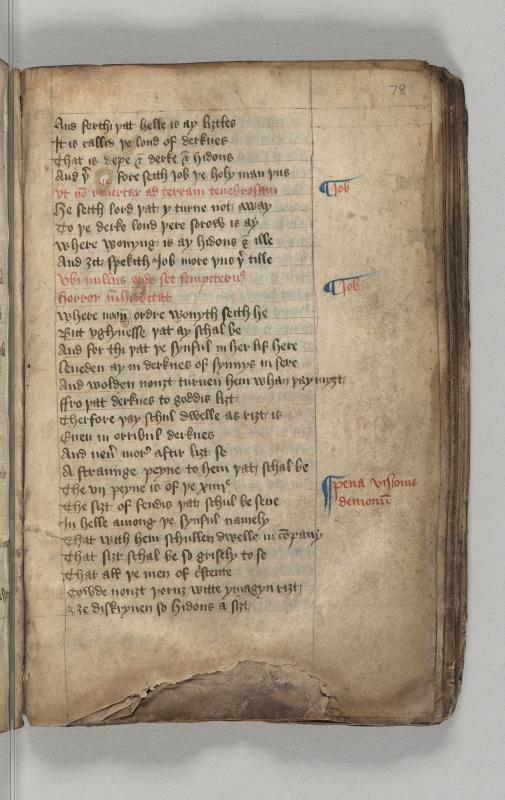 78
And forthi þat helle is ay liȝtles
It is callid þe lond of derknes
That is depe & derke & hidous
And þerfore seith Job þe holy man þus
Job
vt nō reuertar ad terram tenebrosam
He seith lord þat y turne not away
To þe derke lond þere sorow is ay
Where wonyng is ay hidous & ille
And ȝit spekith Job more þus þer tille
Job
Vbi nullus ordo set sempiternus
horror inhabitat
Where noon ordre wonyth seith he
But vglynesse þat ay schal be
And for thi þat þe synful in her lif here
Leueden ay in derknes of synnys in fere
And wolden nouȝt turnen hem whan þay myȝt
ffro þat derknes to goddis liȝt
Therfore þay schul dwelle as riȝt is
Euen in orribul derknes
And neuer more aftir liȝt se
A straunge peyne to hem þat schal be
The vij peyne is of þe xiiij
The siȝt of fendis þat schul be sene
pena visionis
demonū
In helle among þe synful namely
That with hem schullen dwelle in cōpany
That siȝt schal be so grisely to se
That all þe men of cristente
Cowde nouȝt þorou witte ymagyn riȝt
Ne diskryuen so hidous a siȝt